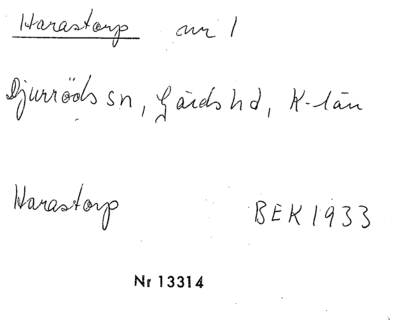 Harastorp nr 1
Djurröds sn, Gärds hd, K-län
Harastorp BEK 1933
Nr 13314